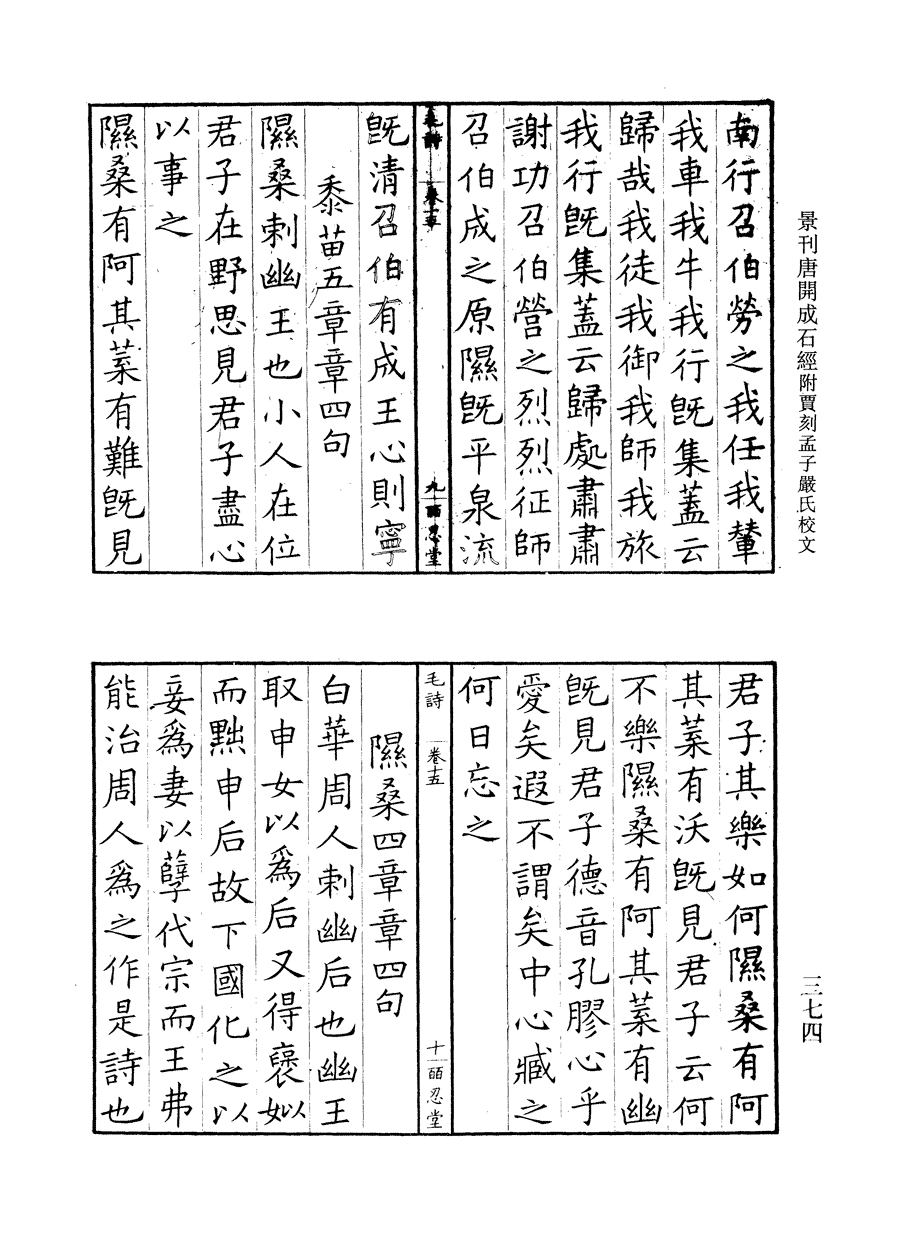 景刊唐開成石經附賈刻孟子嚴氏校文
南行召伯勞之我任我輦
我車我牛我行旣集蓋云
歸哉我徒我御我師我旅
我行旣集蓋云歸處肅肅
謝功召伯營之烈烈征師
召伯成之原隰旣平泉流
毛詩 卷十五 九 皕忍堂
旣清召伯有成王心則寧
黍苗五章章四句
隰桑刺幽王也小人在位
君子在野思見君子盡心
以事之
隰桑有阿其葉有難旣見
三七四
君子其樂如何隰桑有阿
其葉有沃旣見君子云何
不樂隰桑有阿其葉有幽
旣見君子德音孔膠心乎
愛矣遐不謂矣中心臧之
何日忘之
毛詩 卷十五 十 皕忍堂
隰桑四章章四句
白華周人刺幽后也幽王
取申女以爲后又得褒姒
而黜申后故下國化之以
妾爲妻以孽代宗而王弗
能治周人爲之作是詩也